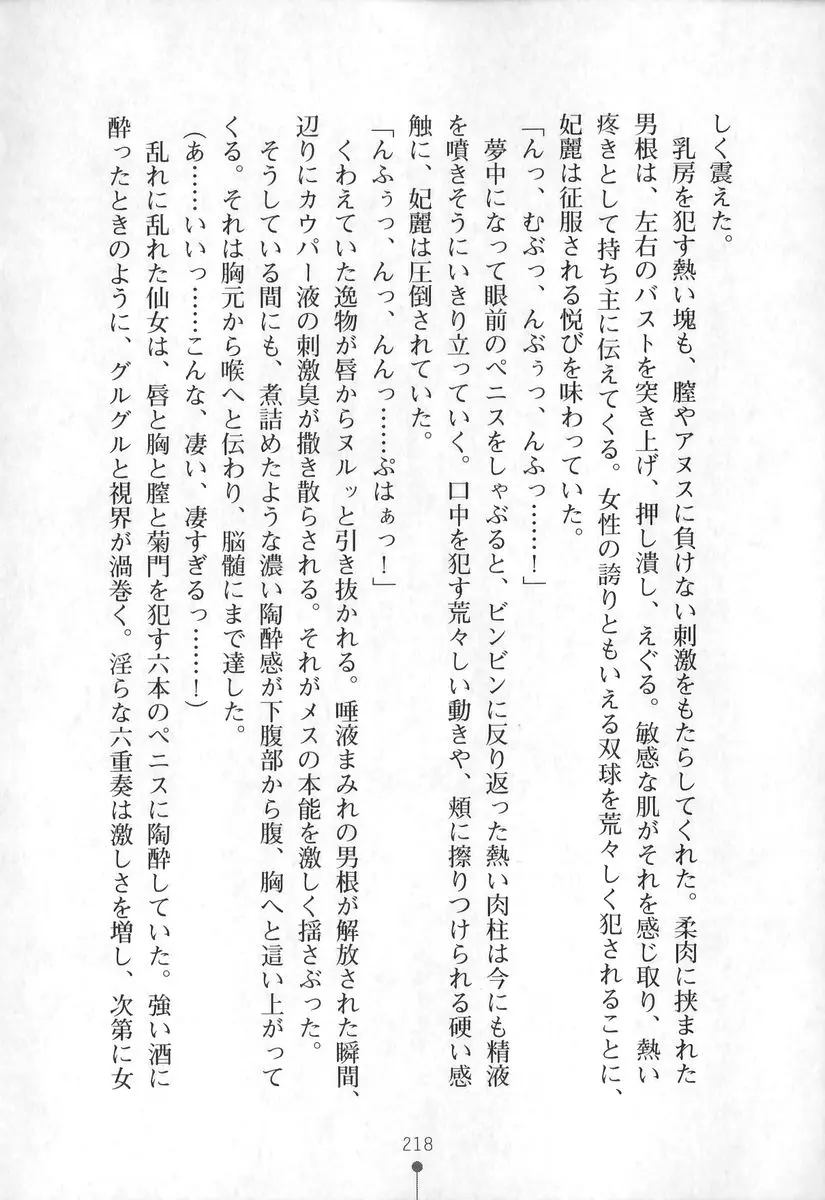 しく震えた。
乳房を犯す熱い塊も、膣やアヌスに負けない刺激をもたらしてくれた。柔肉に挟まれた
男根は、左右のバストを突き上げ、押し潰し、えぐる。敏感な肌がそれを感じ取り、熱い
疼きとして持ち主に伝えてくる。女性の誇りともいえる双球を荒々しく犯されることに、
妃麗は征服される悦びを味わっていた。
「んっ、むぶっ、んぶぅっ、んふっ……！」
夢中になって眼前のペニスをしゃぶると、ビンビンに反り返った熱い肉柱は今にも精液
を噴きそうにいきり立っていく。口中を犯す荒々しい動きや、頬に擦りつけられる硬い感
触に、妃麗は圧倒されていた。
「んふぅっ、んっ、んんっ……ぷはぁっ！」
くわえていた逸物が唇からヌルッと引き抜かれる。唾液まみれの男根が解放された瞬間、
辺りにカウパー液の刺激臭が撒き散らされる。それがメスの本能を激しく揺さぶった。
そうしている間にも、煮詰めたような濃い陶酔感が下腹部から腹、胸へと這い上がって
くる。それは胸元から喉へと伝わり、脳髄にまで達した。
（あ……いいっ……こんな、凄い、凄すぎるっ……！）
乱れに乱れた仙女は、唇と胸と膣と菊門を犯す六本のペニスに陶酔していた。強い酒に
酔ったときのように、グルグルと視界が渦巻く。淫らな六重奏は激しさを増し、次第に女
218